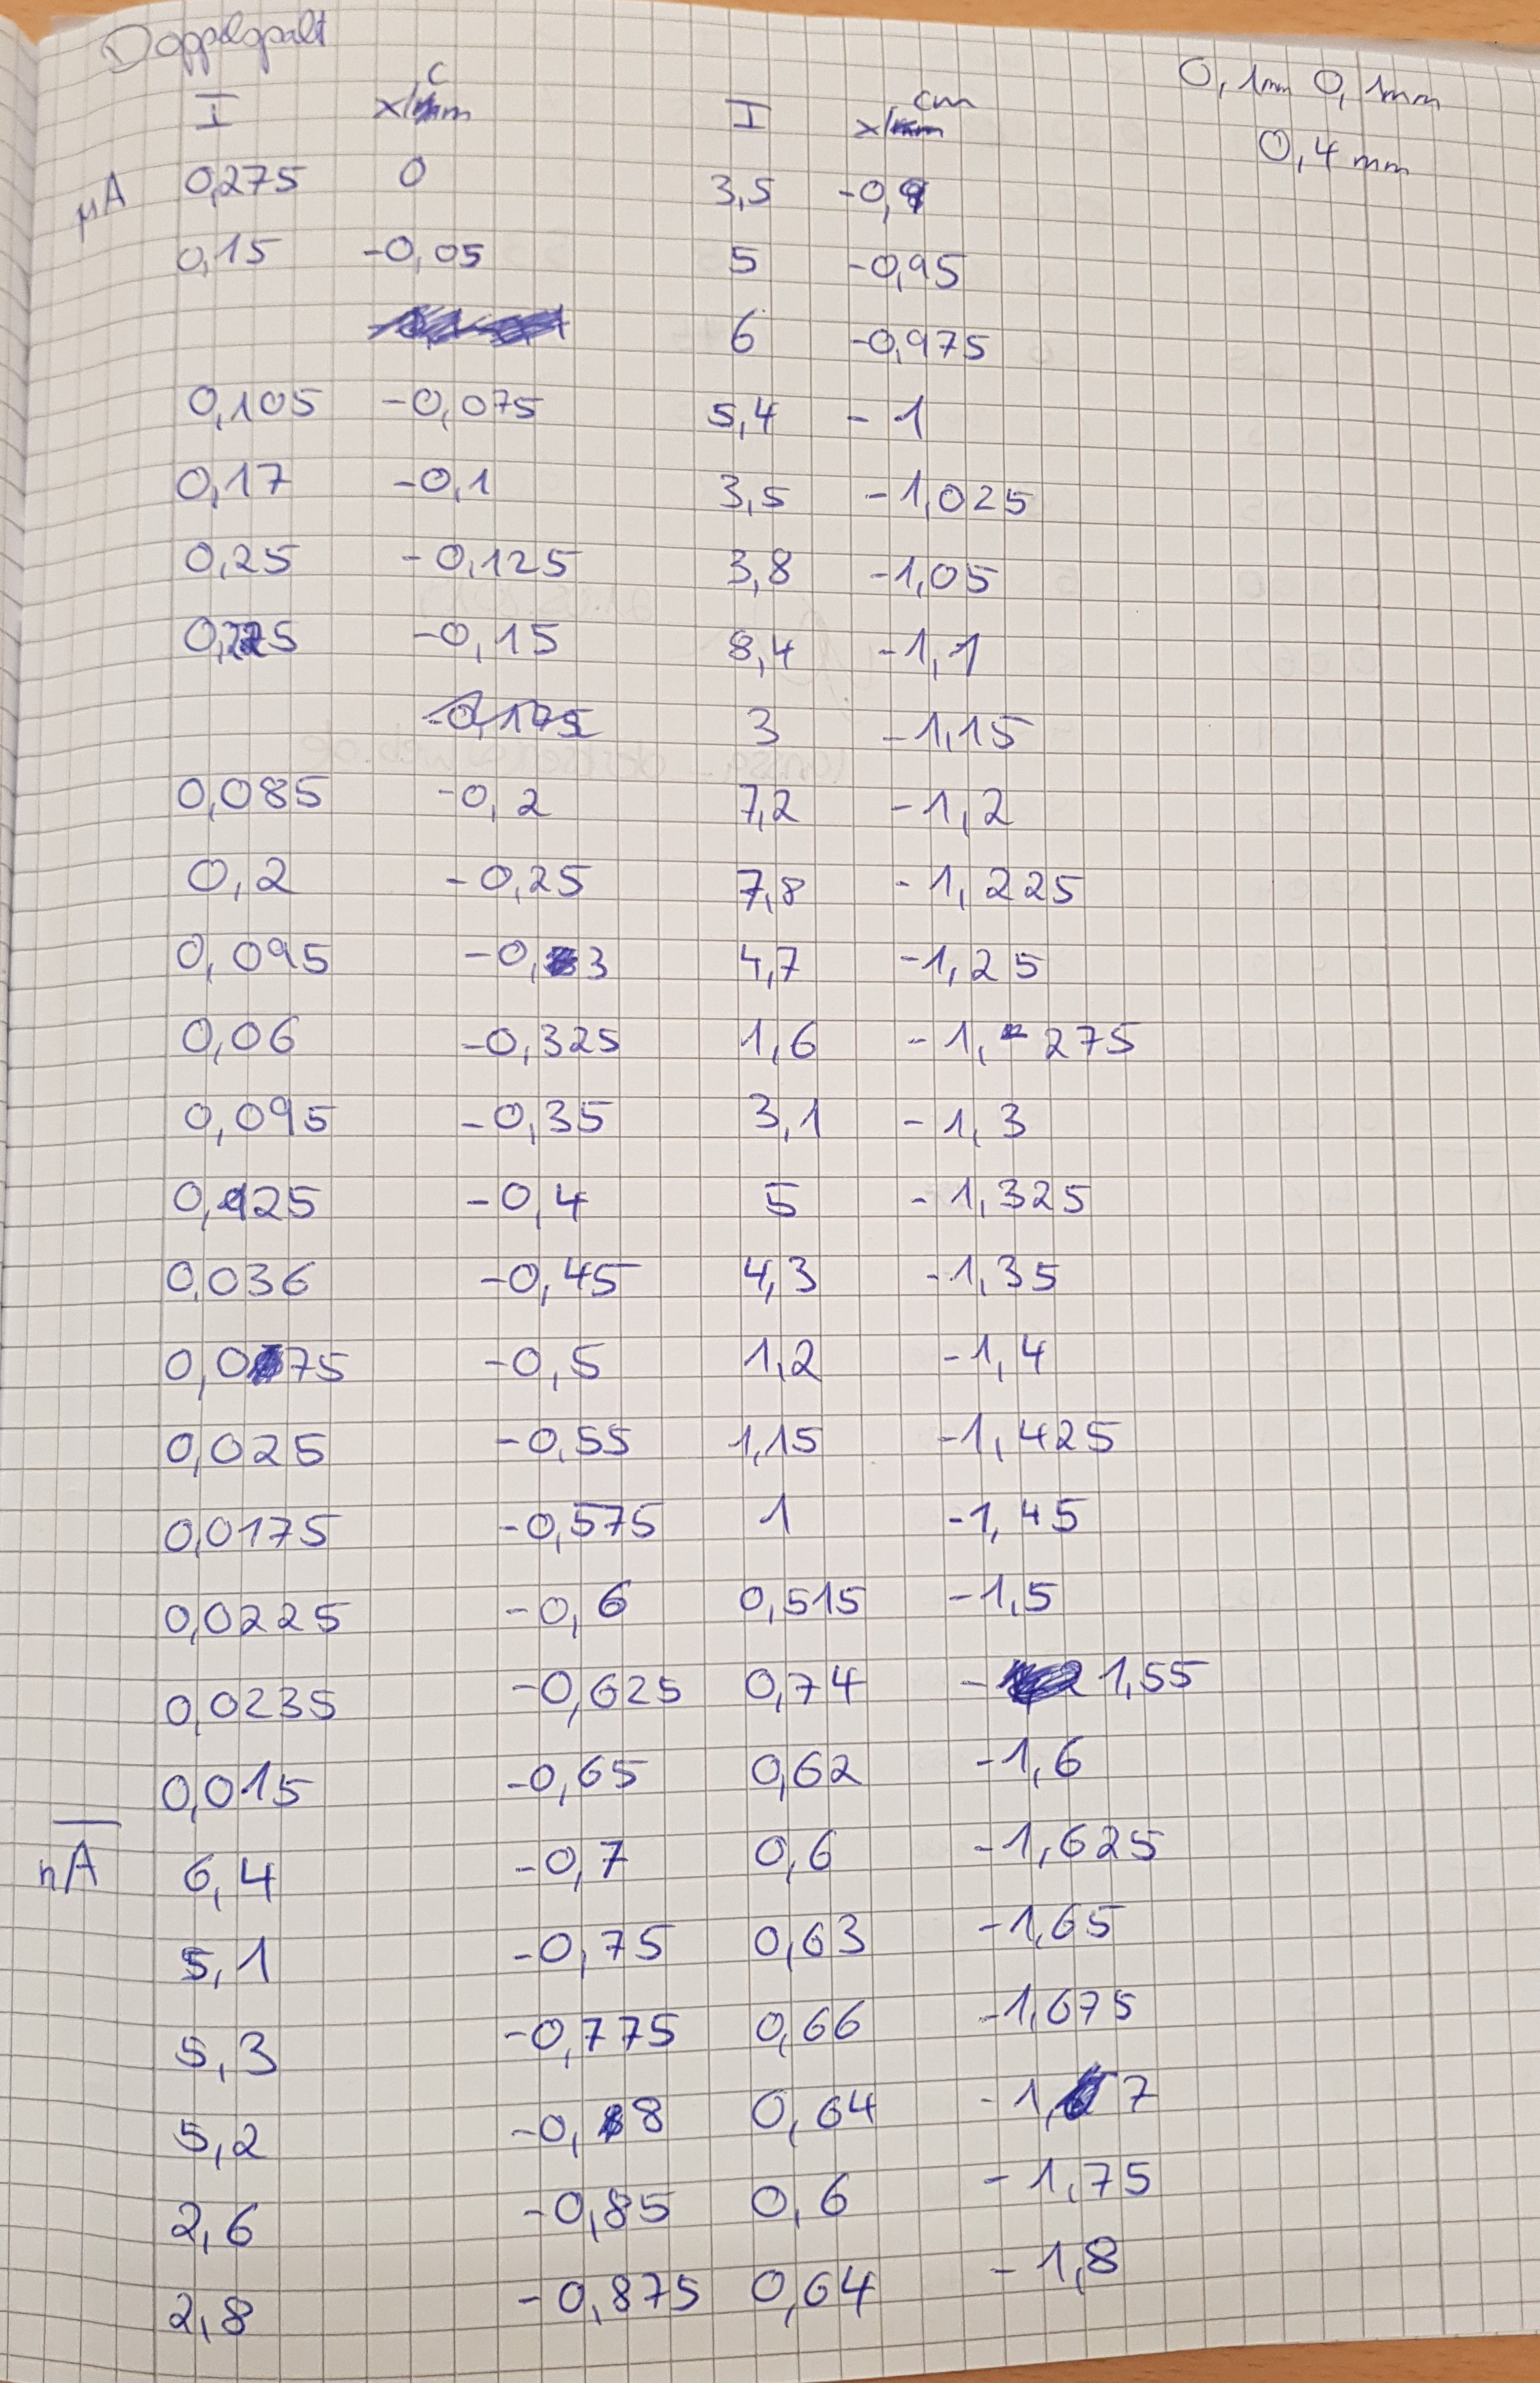 Doppelspalt
0,1mm 0,1mm
0,4 mm
I x/cm I x/cm
µA 0,275 0 3,5 -0,9
0,15 -0,05 5 -0,95
6 -0,975
0,105 -0,075 5,4 -1
0,17 -0,1 3,5 -1,025
0,25 -0,125 3,8 -1,05
-0,15 8,4 -1,1
-0,175 3 -1,15
0,085 -0,2 7,2 -1,2
0,2 -0,25 7,8 -1,225
0,095 -0,3 4,7 -1,25
0,06 -0,325 1,6 -1,275
0,095 -0,35 3,1 -1,3
0,125 -0,4 5 -1,325
0,036 -0,45 4,3 -1,35
0,075 -0,5 1,2 -1,4
0,025 -0,55 1,15 -1,425
0,0175 -0,575 1 -1,45
0,0225 -0,6 0,515 -1,5
0,0235 -0,625 0,74 -1,55
0,015 -0,65 0,62 -1,6
nA 6,4 -0,7 0,6 -1,625
5,1 -0,75 0,63 -1,65
5,3 -0,775 0,66 -1,675
5,2 -0,8 0,64 -1,7
2,6 -0,85 0,6 -1,75
2,8 -0,875 0,64 -1,8